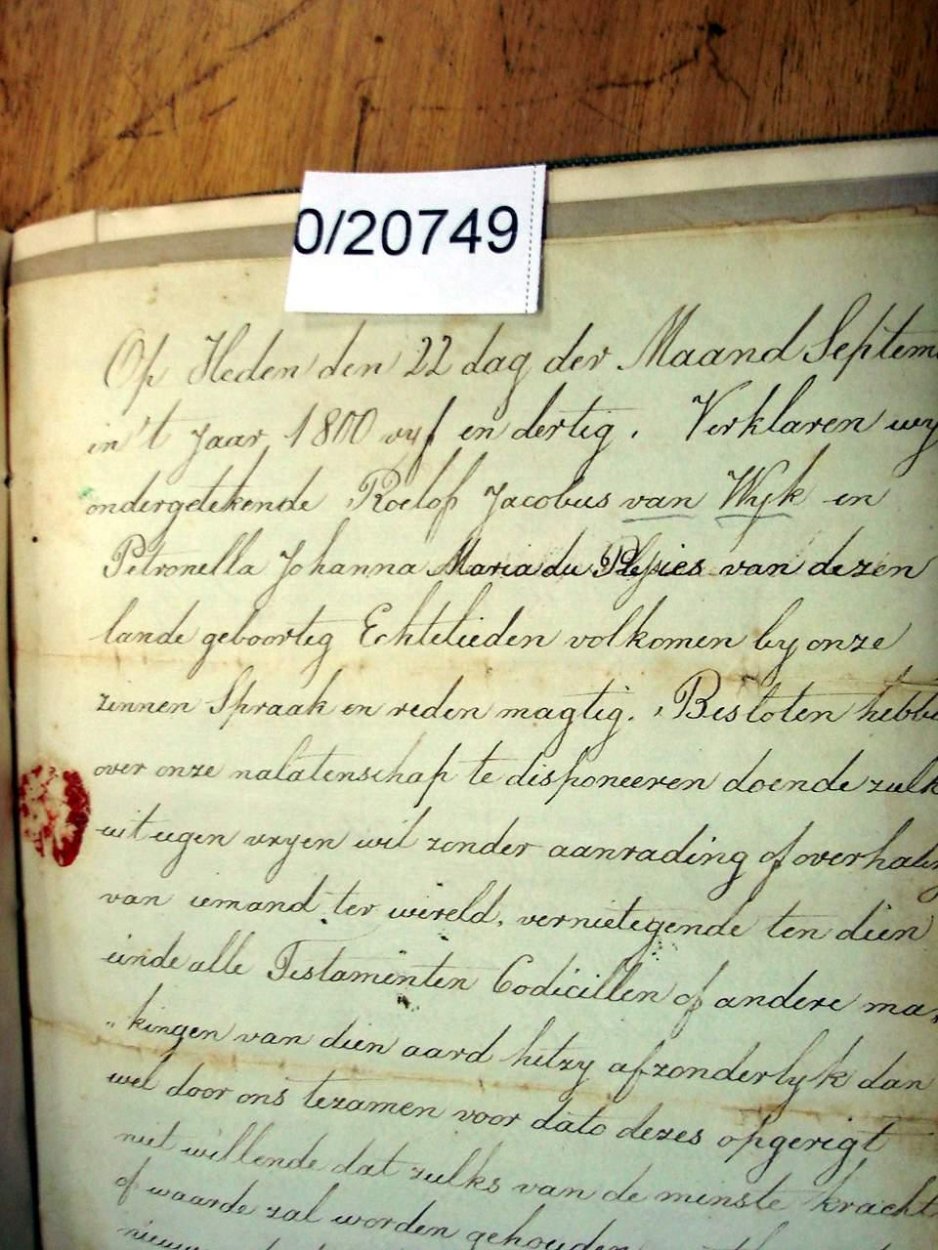 0/20749
Op Heden den 22 dag der Maand Septem
in 't Jaar 1800 vyf en dertig. Verklaren wy
ondergetekende Roelof Jacobus van Wyk en
Petronella Johanna Maria du Plesies van dezen
lande geboortig Echtelieden volkomen by onze
zinnen Spraak en reden magtig. Besloten hebbe
over onze nalatenschap te disponeeren doende zulk
uit eigen vryen wil zonder aanrading of overhalin
van iemand ter wereld, vernietegende ten dien
einde alle Testamenten Codicillen of andere ma„
„kingen van dien aard hetzy afzonderlyk dan
wel door ons tezamen voor dato dezes opgerigt
niet willende dat zulks van de minste kracht
of waarde zal worden gehouden